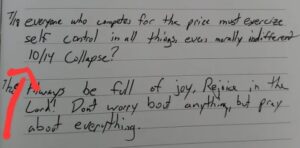 7/8 everyone who competes for the price must exercize
self control in all things, even morally indifferent
10/14 Collapse?
The Always be full of joy. Rejoice in the
Lord! Dont worry bout anything, but pray
about everything.